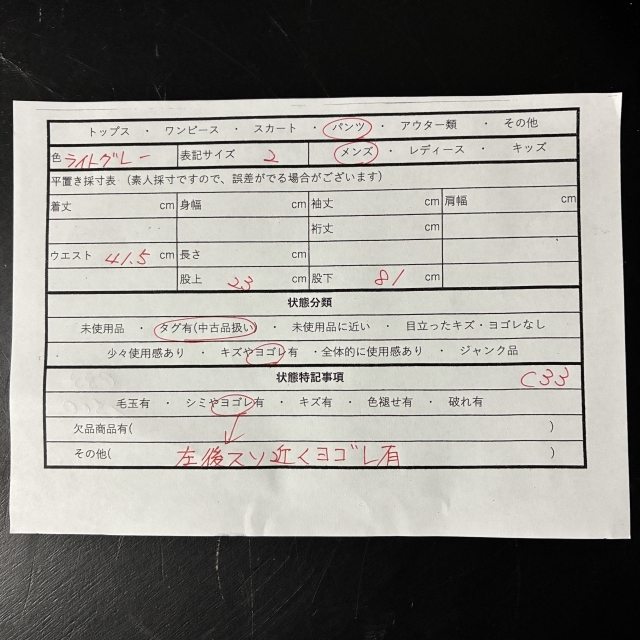 トップス ・ ワンピース ・ スカート ・ パンツ ・ アウター類 ・ その他
色 ライトグレー 表記サイズ 2 メンズ ・ レディース ・ キッズ
平置き採寸表 (素人採寸ですので、誤差がでる場合がございます)
着丈 cm 身幅 cm 袖丈 cm 肩幅 cm
裄丈 cm
ウエスト 41.5 cm 長さ cm
股上 23 cm 股下 81 cm
状態分類
未使用品 ・ タグ有(中古品扱い) ・ 未使用品に近い ・ 目立ったキズ・ヨゴレなし
・ 少々使用感あり ・ キズやヨゴレ有 ・全体的に使用感あり ・ ジャンク品
状態特記事項 C33
毛玉有 ・ シミやヨゴレ有 ・ キズ有 ・ 色褪せ有 ・ 破れ有
欠品商品有( )
その他( 左後スソ近くヨゴレ有 )